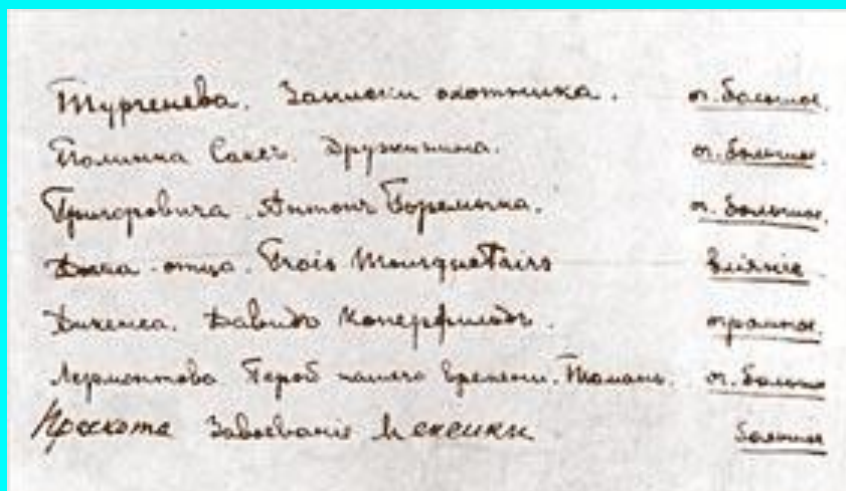 Тургенева. Записки охотника. оч. большое.
Полинька Саксъ. Дружинина. оч. большое.
Григоровича. Антонъ Горемыка. оч. большое.
отца. Trois Mousquetairs вліяніе
Дикенса. Давидъ Коперфильдъ. огромное.
Лермонтова Герой нашего времени. Тамань. оч. большое
Прескота Завоеваніе Мексики большое